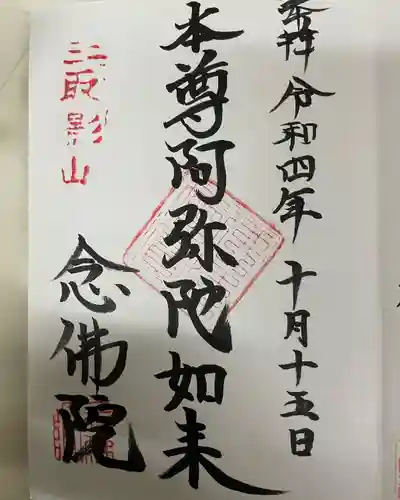 奉拝 令和四年十月十五日
本尊阿弥陀如来
三取影山
念佛院